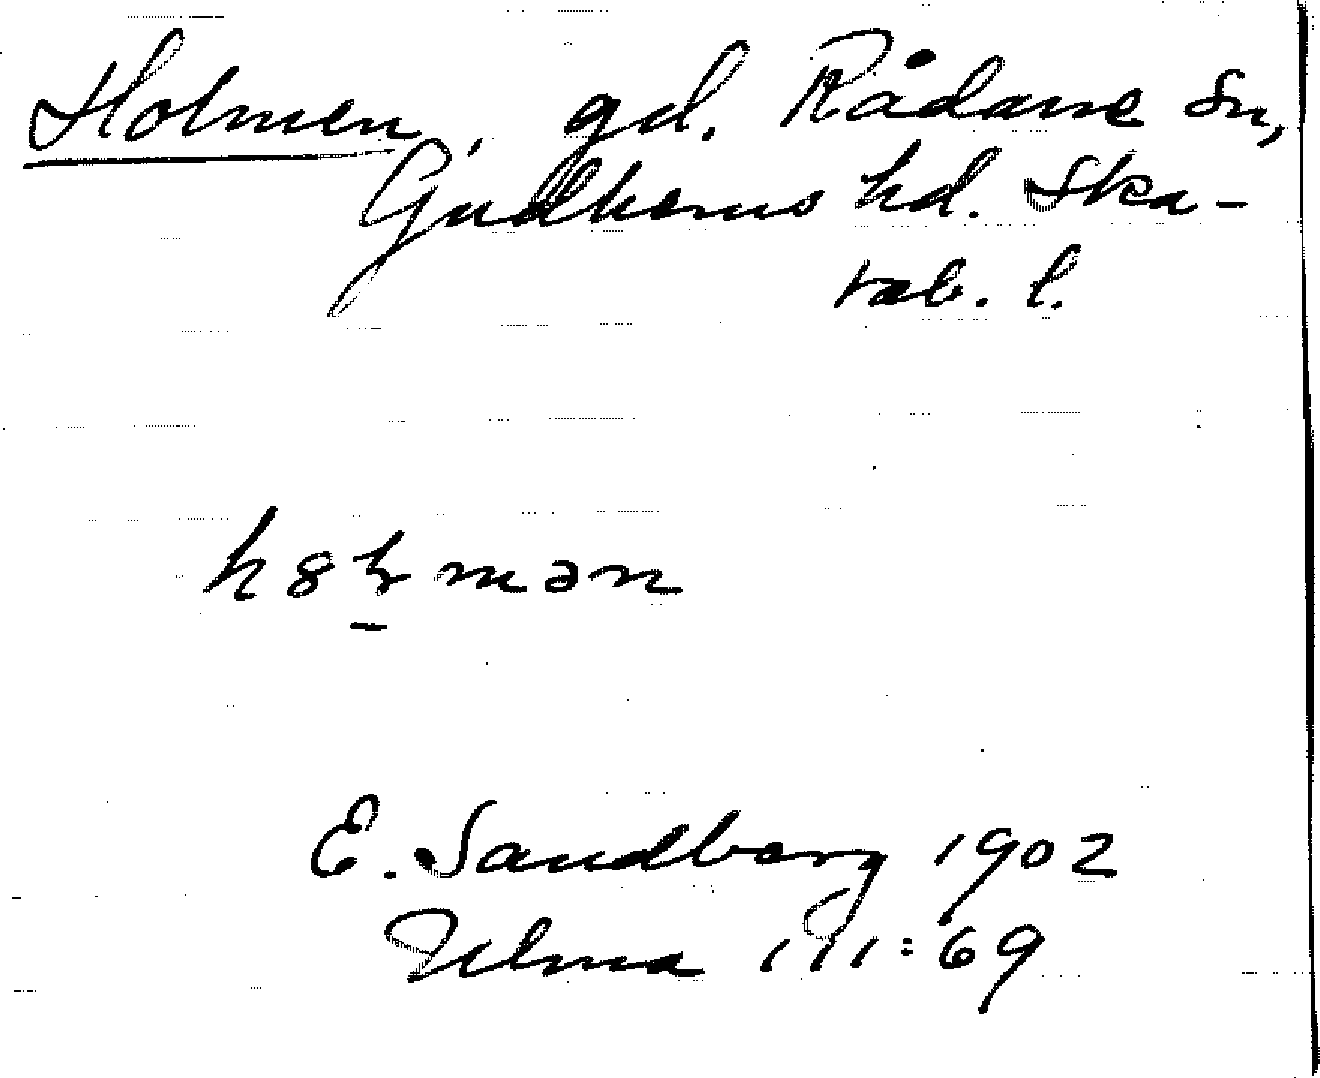 Holmen, gd. Rådane sn,
Gudhems hd. Ska-
rab. l.
E. Sandberg 1902
Ulma 111:69